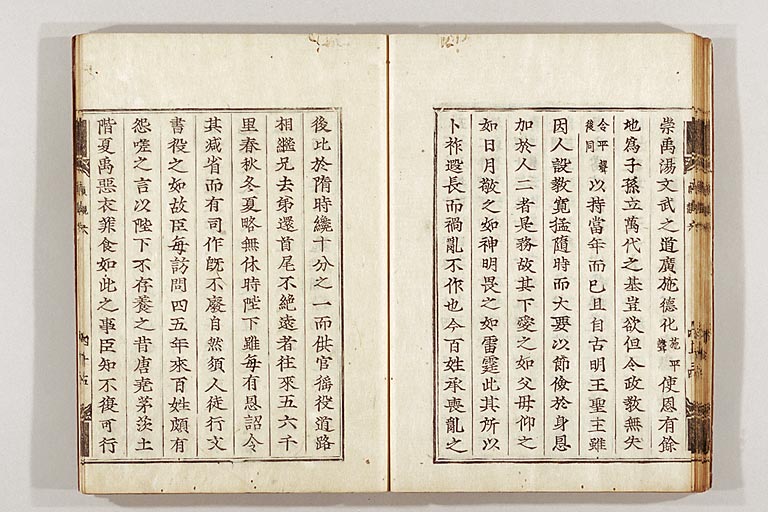 崇禹湯文武之道廣施德化施平聲使恩有餘
地爲子孫立萬代之基豈欲但令政敎無失
令平聲後同以持當年而已且自古明王聖主雖
因人設敎寬猛隨時而大要以節儉於身恩
加於人二者是務故其下愛之如父母仰之
如日月敬之如神明畏之如雷霆此其所以
卜祚遐長而禍亂不作也今百姓承喪亂之
後比於隋時纔十分之一而供官徭役道路
相繼兄去弟還首尾不絕遠者往來五六千
里春秋冬夏略無休時陛下雖每有恩詔令
其減省而有司作旣不廢自然須人徒行文
書役之如故臣每訪問四五年來百姓頗有
怨嗟之言以陛下不存養之昔唐堯茅茨土
階夏禹惡衣菲食如此之事臣知不復可行